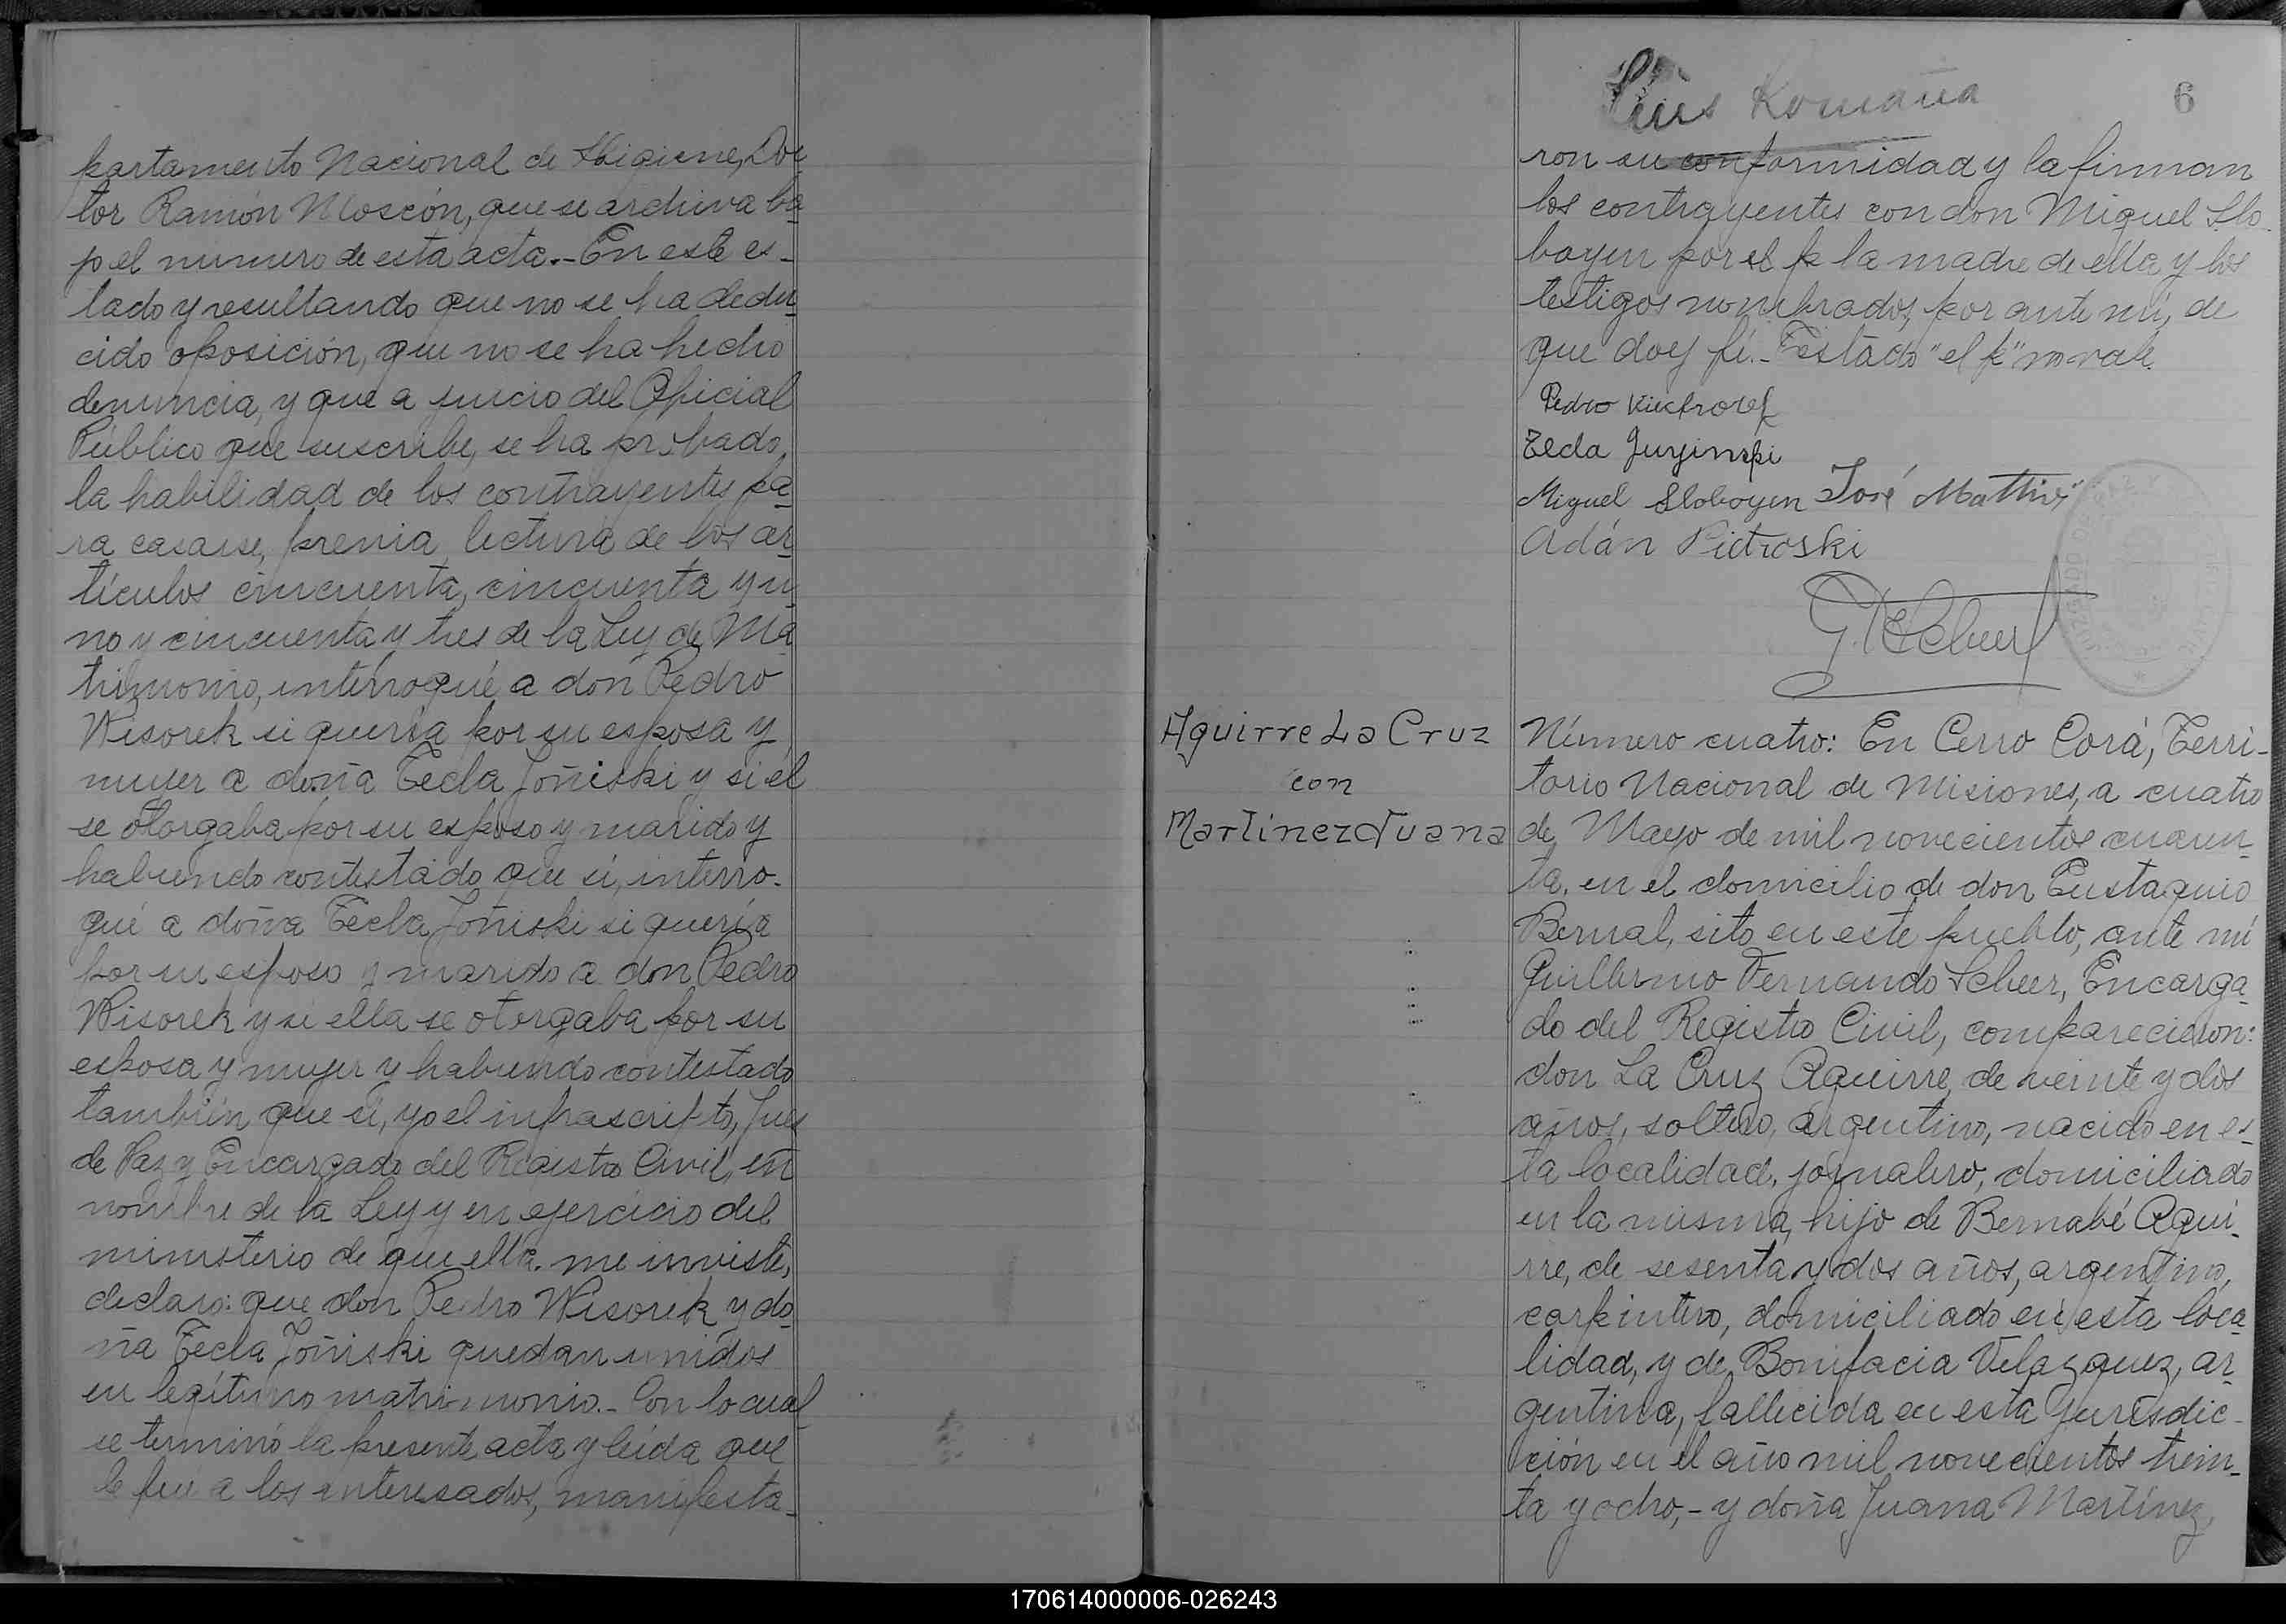 partamento Nacional de Higiene, Doc
tor Ramón Moscón, que se archiva ba
jo el numero de esta acta.- En este es-
tado y resultando que no se ha dedu
cido oposición, que no se ha hecho
denuncia, y que a juicio del Oficial
Público que suscribe, se ha probado
la habilidad de los contrayentes pa
ra casarse, previa lectura de los ar
tículos cincuenta, cincuenta y u
no y cincuenta y tres de la Ley de Ma
trimonio, interrogué a don Pedro
Wisorek si queria por su esposa y
mujer a doña Tecla Joñiski y si él
se otorgaba por su esposo y marido y
habiendo contestado que sí, interro-
gué a doña Tecla Joñiski si quería
por su esposo y marido a don Pedro
Wisorek y si ella se otorgaba por su
esposa y mujer y habiendo contestado
también que sí, yo el infrascripto, Juez
de Paz y Encargado del Registro Civil, en
nombre de la Ley y en ejercicio del
ministerio de que ella me inviste,
declaro: que don Pedro Wisorek y do
ña Tecla Joñiski quedan unidos
en legítimo matrimonio.- Con lo cual
se terminó la presente acta y leida que
le fue a los interesados, manifesta-
Luis Romaña
6
ron su conformidad y la firman
los contrayentes con don Miguel Slo-
boyen por el p la madre de ella y los
testigos nombrados, por ante mí, de
que doy fé.- Testado "el p" no vale.
Pedro
Tecla
Miguel Sloboyen José
Adán Pietroski
G. F. Scheer
Aguirre La Cruz
con
Martínez Juana
Número cuatro: En Cerro Corá, Terri-
torio Nacional de Misiones, a cuatro
de Mayo de mil novecientos cuaren-
ta, en el domicilio de don Eustaquio
Bernal, sito en este pueblo, ante mí
Guillermo Fernando Scheer, Encarga
do del Registro Civil, comparecieron:
don La Cruz Aguirre, de veinte y dos
años, soltero, argentino, nacido en es-
ta localidad, jornalero, domiciliado
en la misma, hijo de Bernabé Agui-
rre, de sesenta y dos años, argentino,
carpintero, domiciliado en esta loca
lidad, y de Bonifacia Velazquez, ar
gentina, fallecida en esta jurisdic-
ción en el año mil novecientos trein-
ta y ocho,- y doña Juana Martínez,
170614000006-026243